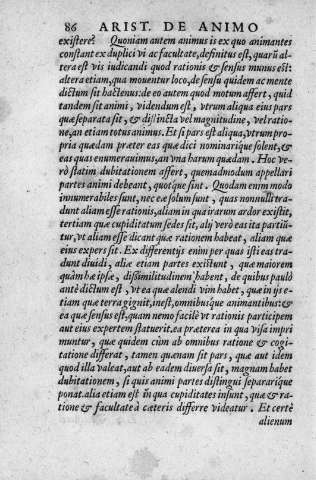 86 ARIST. DE ANIMO
existere? Quoniam autem animus is ex quo animantes
constant ex duplici vi ac facultate, definitus est, quarū al
tera est vis iudicandi quod rationis & sensus munus est:
altera etiam, qua mouentur loco, de sensu quidem ac mente
dictum sit hactenus: de eo autem quod motum affert, quid
tandem sit animi, videndum est, vtrum aliqua eius pars
quæ separata sit, & distincta vel magnitudine, vel ratio-
ne, an etiam totus animus. Et si pars est aliqua, vtrum pro-
pria quædam præter eas quæ dici nominarique solent, &
eas quas enumerauimus, an vna harum quædam. Hoc ve-
rò statim dubitationem affert, quemadmodum appellari
partes animi debeant, quotque sint. Quodam enim modo
innumerabiles sunt, nec eæ solum sunt, quas nonnulli tra-
dunt aliam esse rationis, aliam in qua irarum ardor existit,
tertiam quæ cupiditatum sedes sit, alij verò eas ita partiū-
tur, vt aliam esse dicant quæ rationem habeat, aliam quæ
eius expers sit. Ex differentijs enim per quas isti eas tra-
dunt diuidi, aliæ etiam partes existunt, quæ maiorem
quàm hæ ipsæ, dissimilitudinem habent, de quibus paulò
antè dictum est, vt ea quæ alendi vim habet, quæ in ijs e-
tiam quæ terra gignit, inest, omnibusque animantibus: &
ea quæ sensus est, quam nemo facilè vt rationis participem
aut eius expertem statuerit. ea præterea in qua visa impri
muntur, quæ quidem cùm ab omnibus ratione & cogi-
tatione differat, tamen quænam sit pars, quæ aut idem
quod illa valeat, aut ab eadem diuersa sit, magnam habet
dubitationem, si quis animi partes distingui separarique
ponat. alia etiam est in qua cupiditates insunt, quæ & ra-
tione & facultate à cæteris differre videatur. Et certè
alienum